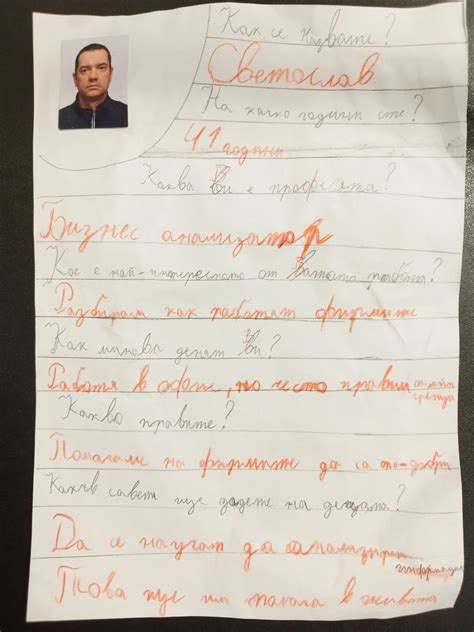 Как се казвате?
Светослав
На колко години сте?
41 години
Каква Ви е професията?
Бизнес анализатор
Кое е най-интересното от Вашата работа?
Разбирам как работят фирмите
Как минава денят Ви?
Работя в офис, но често правим онлайн срещи
Какво правите?
Помагам на фирмите да са по-добри
Какъв съвет ще дадете на децата?
Да се научат да анализират информация
Това ще им помага в живота